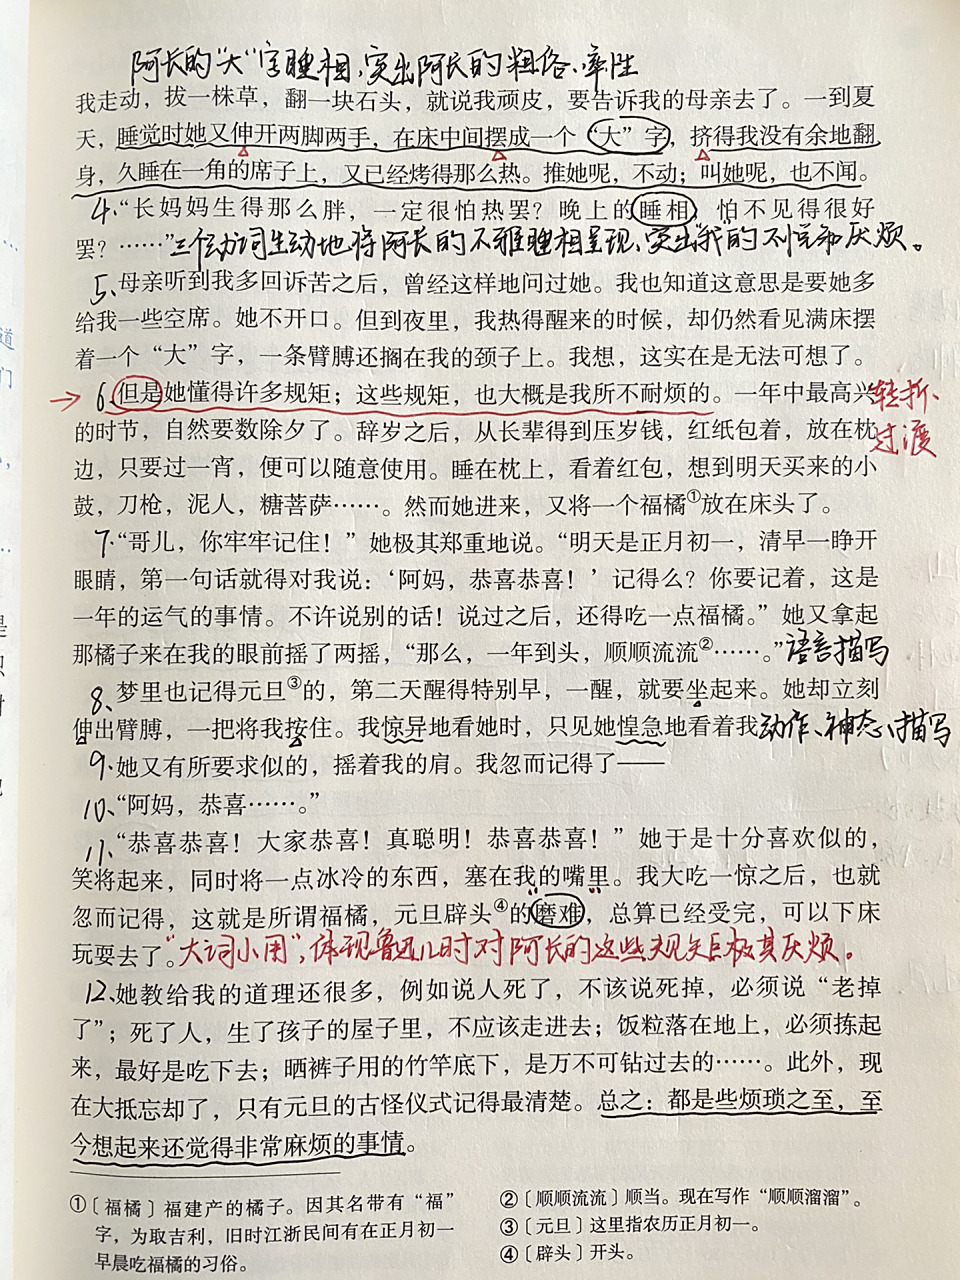 阿长的“大”字睡相,突出阿长的粗俗、率性
我走动，拔一株草，翻一块石头，就说我顽皮，要告诉我的母亲去了。一到夏
天，睡觉时她又伸开两脚两手，在床中间摆成一个“大”字，挤得我没有余地翻
身，久睡在一角的席子上，又已经烤得那么热。推她呢，不动；叫她呢，也不闻。
4、“长妈妈生得那么胖，一定很怕热罢？晚上的睡相，怕不见得很好
罢？……”三个动词生动地将阿长的不雅睡相呈现,突出“我”的不悦和厌烦。
5、母亲听到我多回诉苦之后，曾经这样地问过她。我也知道这意思是要她多
给我一些空席。她不开口。但到夜里，我热得醒来的时候，却仍然看见满床摆
着一个“大”字，一条臂膊还搁在我的颈子上。我想，这实在是无法可想了。
6、但是她懂得许多规矩；这些规矩，也大概是我所不耐烦的。一年中最高兴转折、
的时节，自然要数除夕了。辞岁之后，从长辈得到压岁钱，红纸包着，放在枕过渡
边，只要过一宵，便可以随意使用。睡在枕上，看着红包，想到明天买来的小
鼓，刀枪，泥人，糖菩萨……。然而她进来，又将一个福橘①放在床头了。
7、“哥儿，你牢牢记住！”她极其郑重地说。“明天是正月初一，清早一睁开
眼睛，第一句话就得对我说：‘阿妈，恭喜恭喜！’记得么？你要记着，这是
一年的运气的事情。不许说别的话！说过之后，还得吃一点福橘。”她又拿起
那橘子来在我的眼前摇了两摇，“那么，一年到头，顺顺流流②……。”语言描写
8、梦里也记得元旦③的，第二天醒得特别早，一醒，就要坐起来。她却立刻
伸出臂膊，一把将我按住。我惊异地看她时，只见她惶急地看着我动作、神态、描写
9、她又有所要求似的，摇着我的肩。我忽而记得了——
10、“阿妈，恭喜……。”
11、“恭喜恭喜！大家恭喜！真聪明！恭喜恭喜！”她于是十分喜欢似的，
笑将起来，同时将一点冰冷的东西，塞在我的嘴里。我大吃一惊之后，也就
忽而记得，这就是所谓福橘，元旦辟头④的磨难，总算已经受完，可以下床
玩耍去了。“大词小用”,体现鲁迅儿时对阿长的这些规矩极其厌烦。
12、她教给我的道理还很多，例如说人死了，不该说死掉，必须说“老掉
了”；死了人，生了孩子的屋子里，不应该走进去；饭粒落在地上，必须拣起
来，最好是吃下去；晒裤子用的竹竿底下，是万不可钻过去的……。此外，现
在大抵忘却了，只有元旦的古怪仪式记得最清楚。总之：都是些烦琐之至，至
今想起来还觉得非常麻烦的事情。
①〔福橘〕福建产的橘子。因其名带有“福”
字，为取吉利，旧时江浙民间有在正月初一
早晨吃福橘的习俗。
②〔顺顺流流〕顺当。现在写作“顺顺溜溜”。
③〔元旦〕这里指农历正月初一。
④〔辟头〕开头。